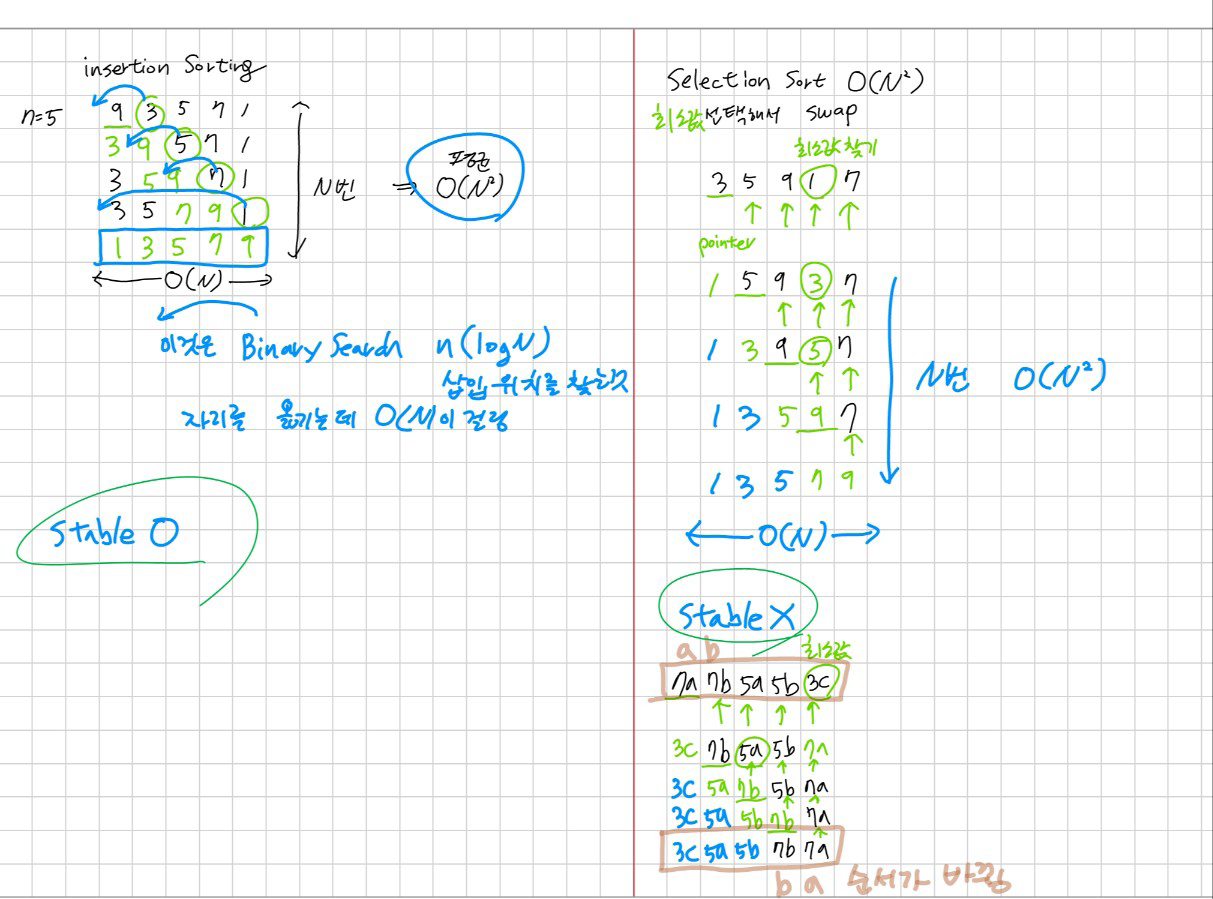 insertion Sorting
n=5
9 3 5 7 1
3 9 5 7 1
3 5 9 7 1
3 5 7 9 1
1 3 5 7 9
N번 ⇒ 평균
O(N²)
O(N)
이것은 Binary Search n(logN)
삽입 위치를 찾는것
자리를 옮기는데 O(N)이 걸림
Stable O
Selection Sort O(N²)
최소값 선택해서 swap
최소값 찾기
3 5 9 1 7
pointer
1 5 9 3 7
1 3 9 5 7
1 3 5 9 7
1 3 5 7 9
N번 O(N²)
O(N)
Stable X
a b 최소값
7a 7b 5a 5b 3c
3c 7b 5a 5b 7a
3c 5a 7b 5b 7a
3c 5a 5b 7b 7a
3c 5a 5b 7b 7a
b a 순서가 바뀜